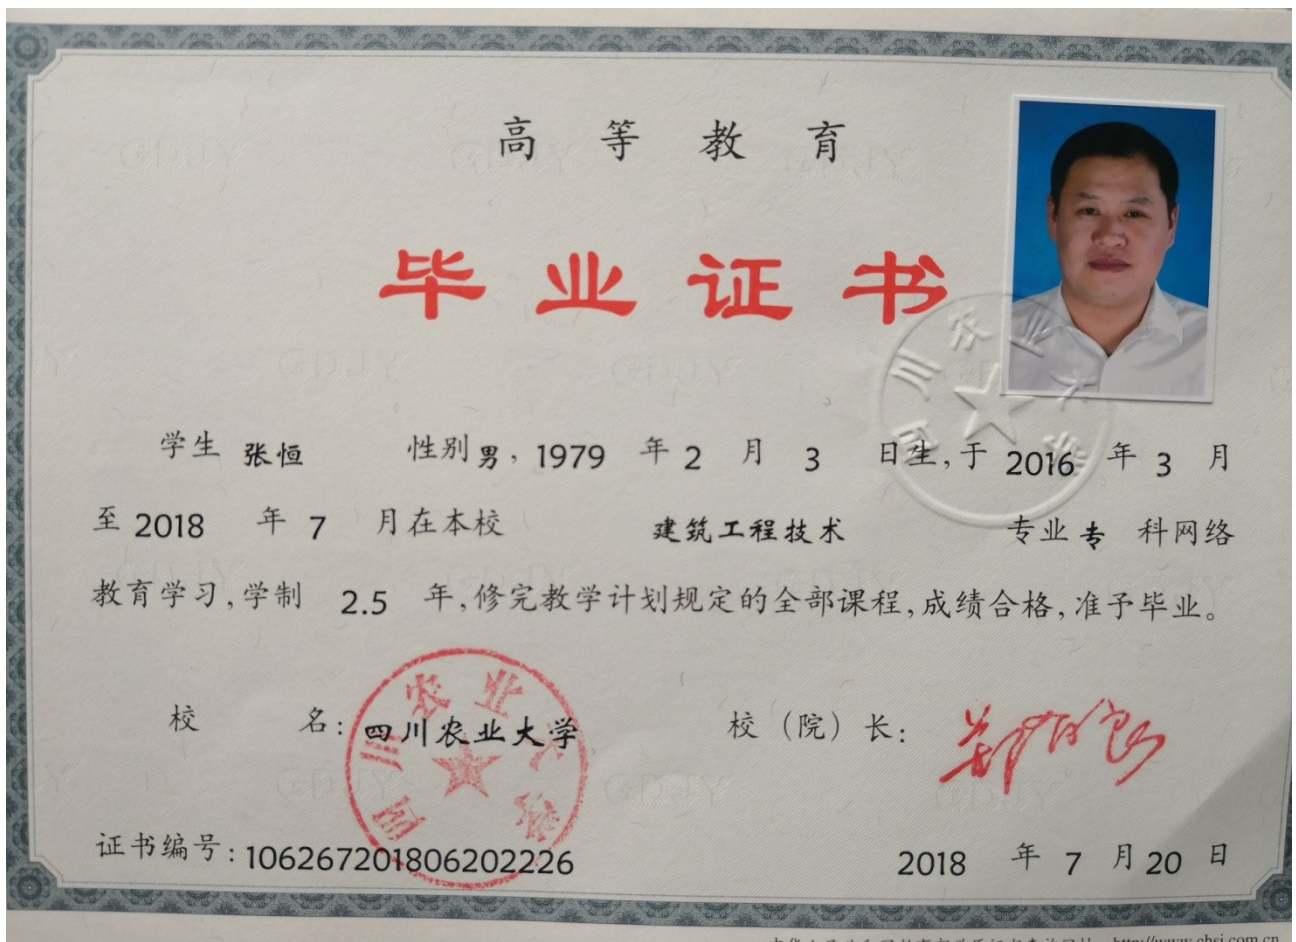 高等教育
毕业证书
学生 张恒 性别 男, 1979 年 2 月 3 日生,于 2016 年 3 月
至 2018 年 7 月在本校 建筑工程技术 专业 专 科网络
教育学习,学制 2.5 年,修完教学计划规定的全部课程,成绩合格,准予毕业。
校 名: 四川农业大学 校(院)长:
四川农业大学
四川农业大学
证书编号: 106267201806202226 2018 年 7 月 20 日
http://www.chsi.com.cn